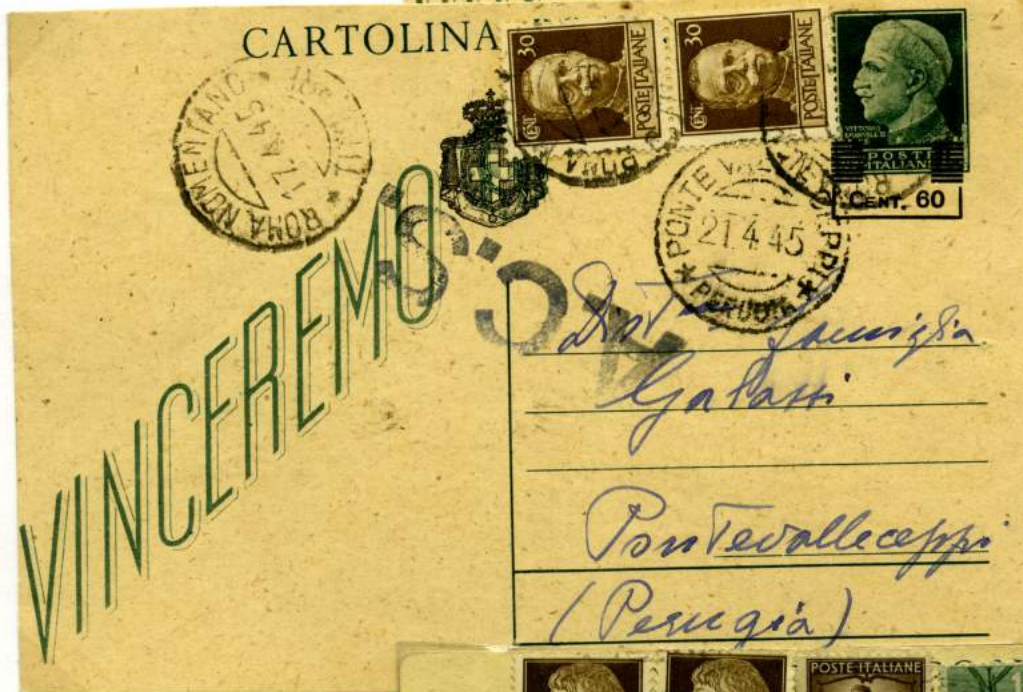 CARTOLINA
CENT. 30
POSTE ITALIANE
CENT. 30
POSTE ITALIANE
VITTORIO
EMANUELE III
POSTE
ITALIANE
CENT. 60
ROMA NOMENTANO
17.4.45
ROMA
PONTE VALLECEPPI
21.4.45
PERUGIA
VINCEREMO
A.C.S
famiglia
Galassi
Pontevalleceppi
(Perugia)
POSTE ITALIANE